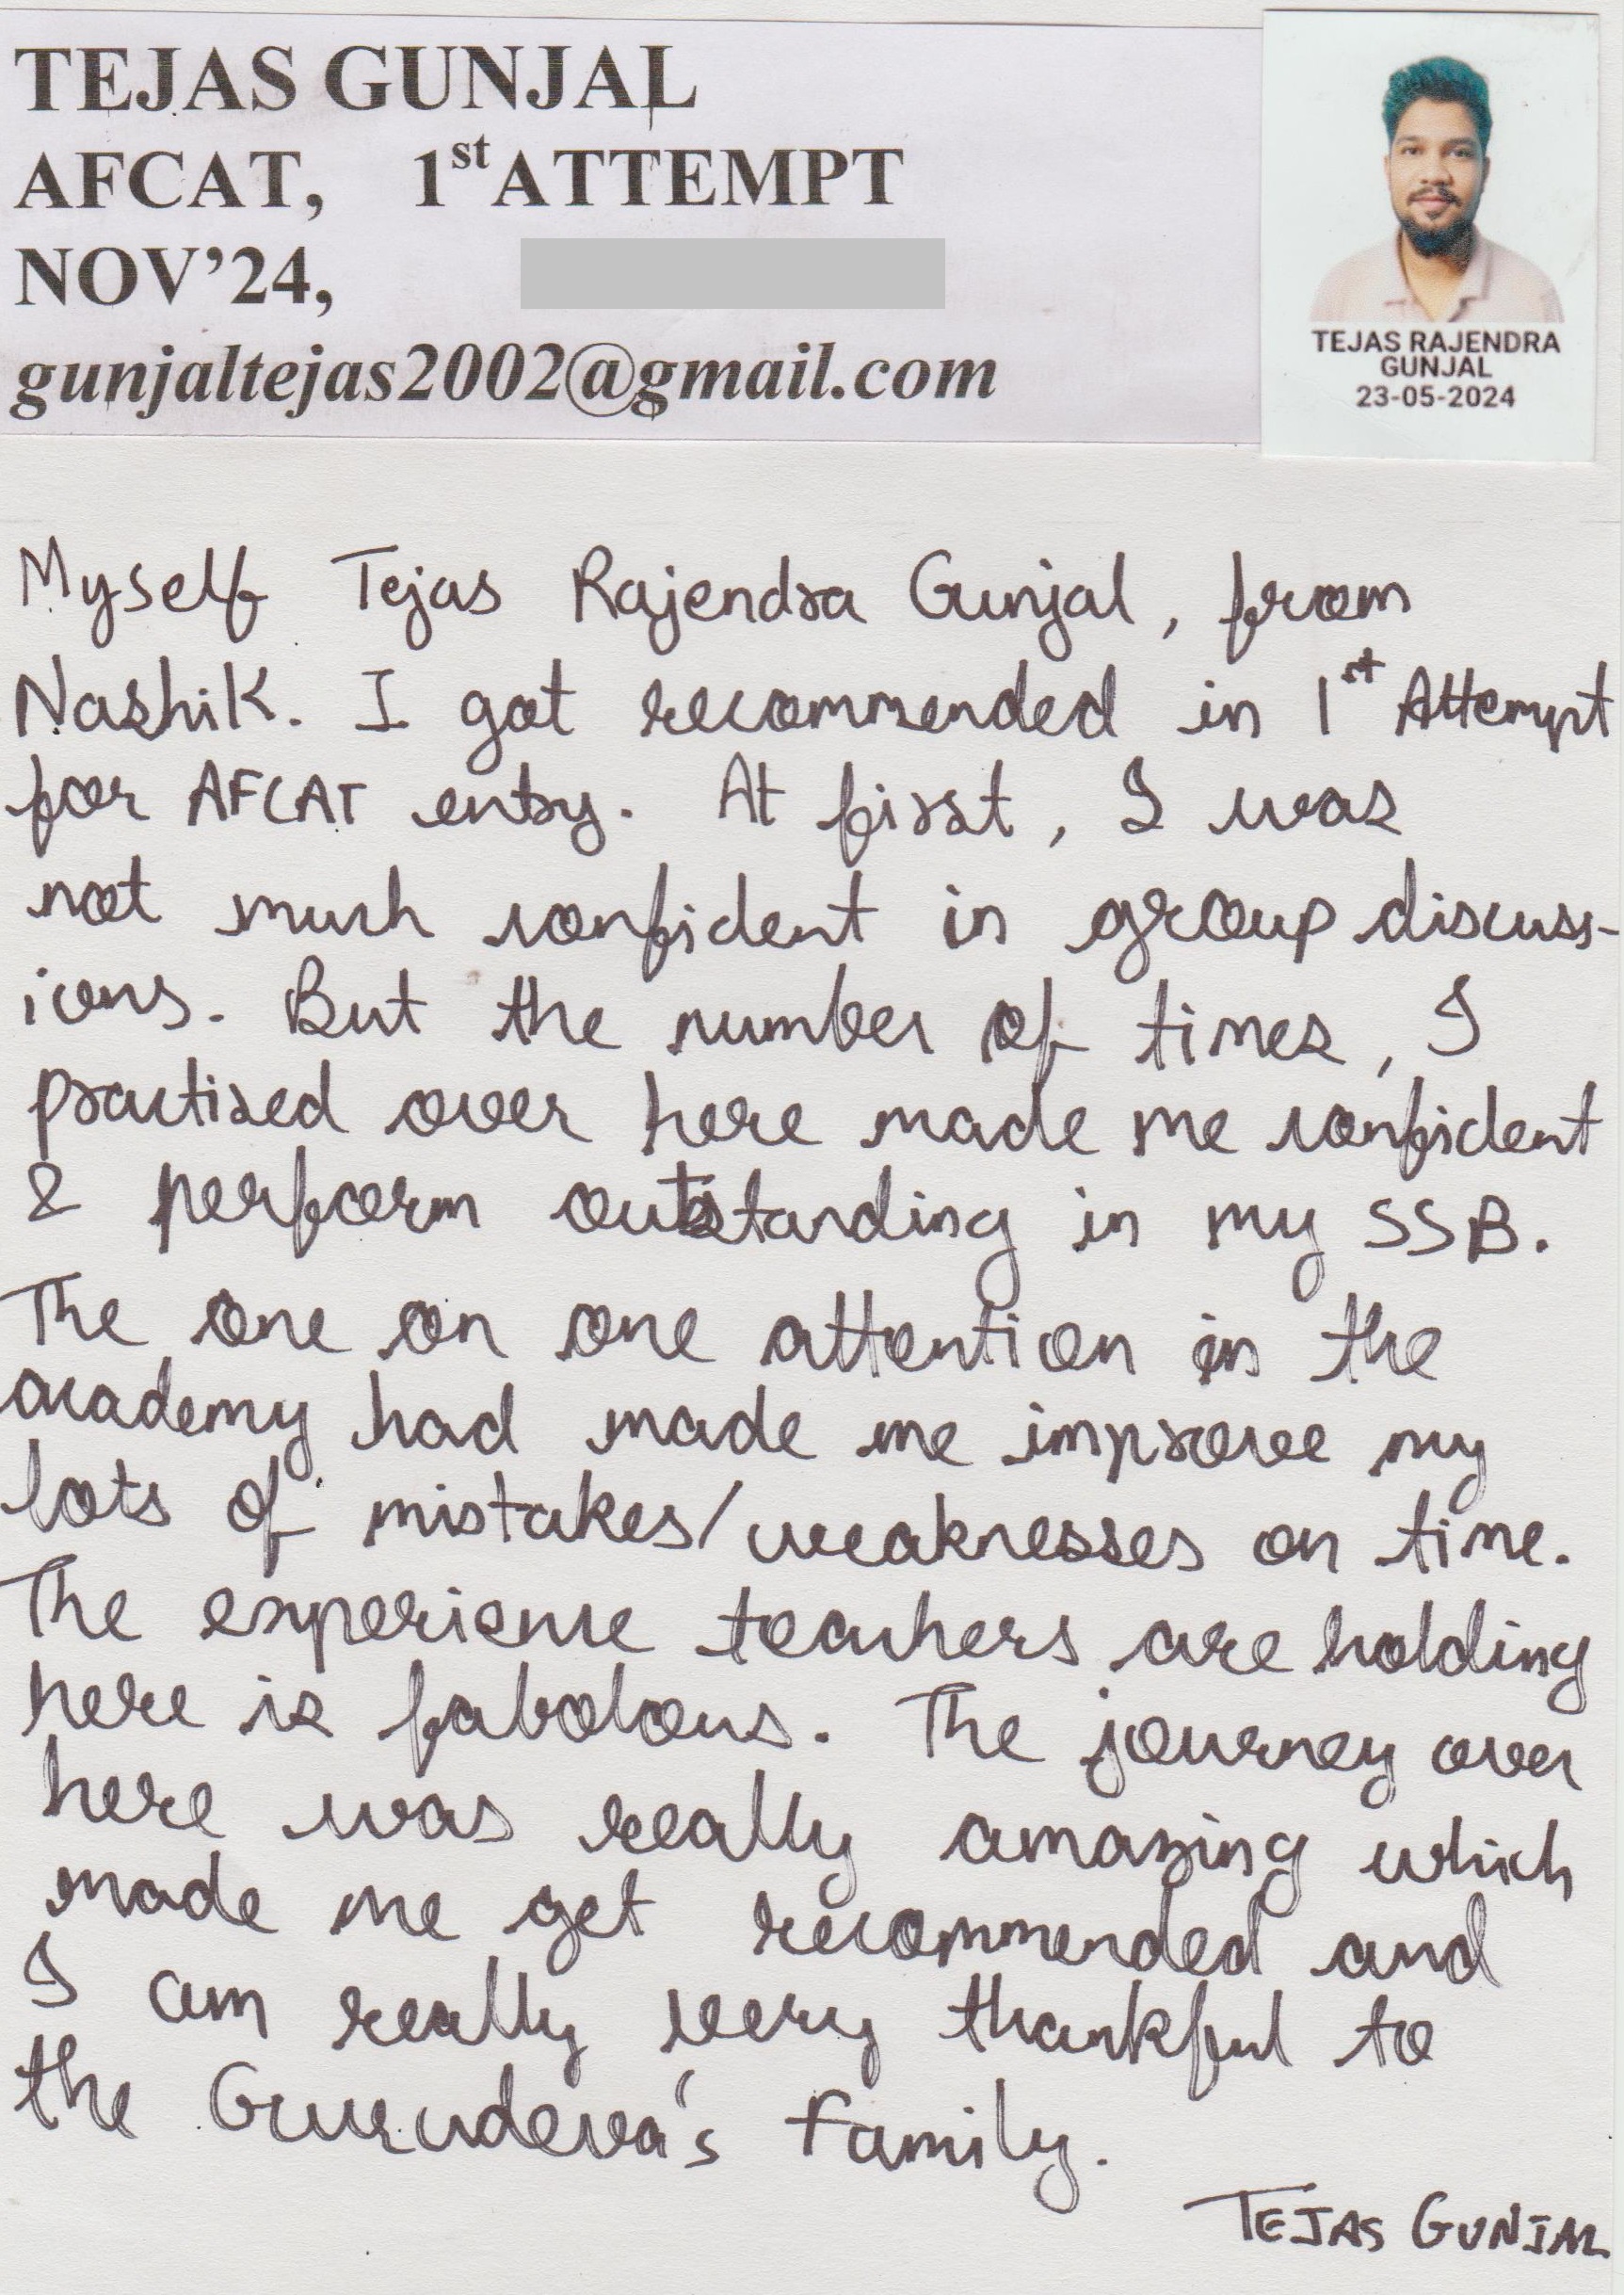 TEJAS GUNJAL
AFCAT, 1st ATTEMPT
NOV'24,
gunjaltejas2002@gmail.com
TEJAS RAJENDRA
GUNJAL
23-05-2024
Myself Tejas Rajendra Gunjal, from
Nashik. I got recommended in 1st Attempt
for AFCAT entry. At first, I was
not much confident in group discuss-
ions. But the number of times, I
practised over here made me confident
& perform outstanding in my SSB.
The one on one attention in the
academy had made me improve my
lots of mistakes/weaknesses on time.
The experience teachers are holding
here is fabolous. The journey over
here was really amazing which
made me get recommended and
I am really very thankful to
the Gurudeva's Family.
TEJAS GUNJAL